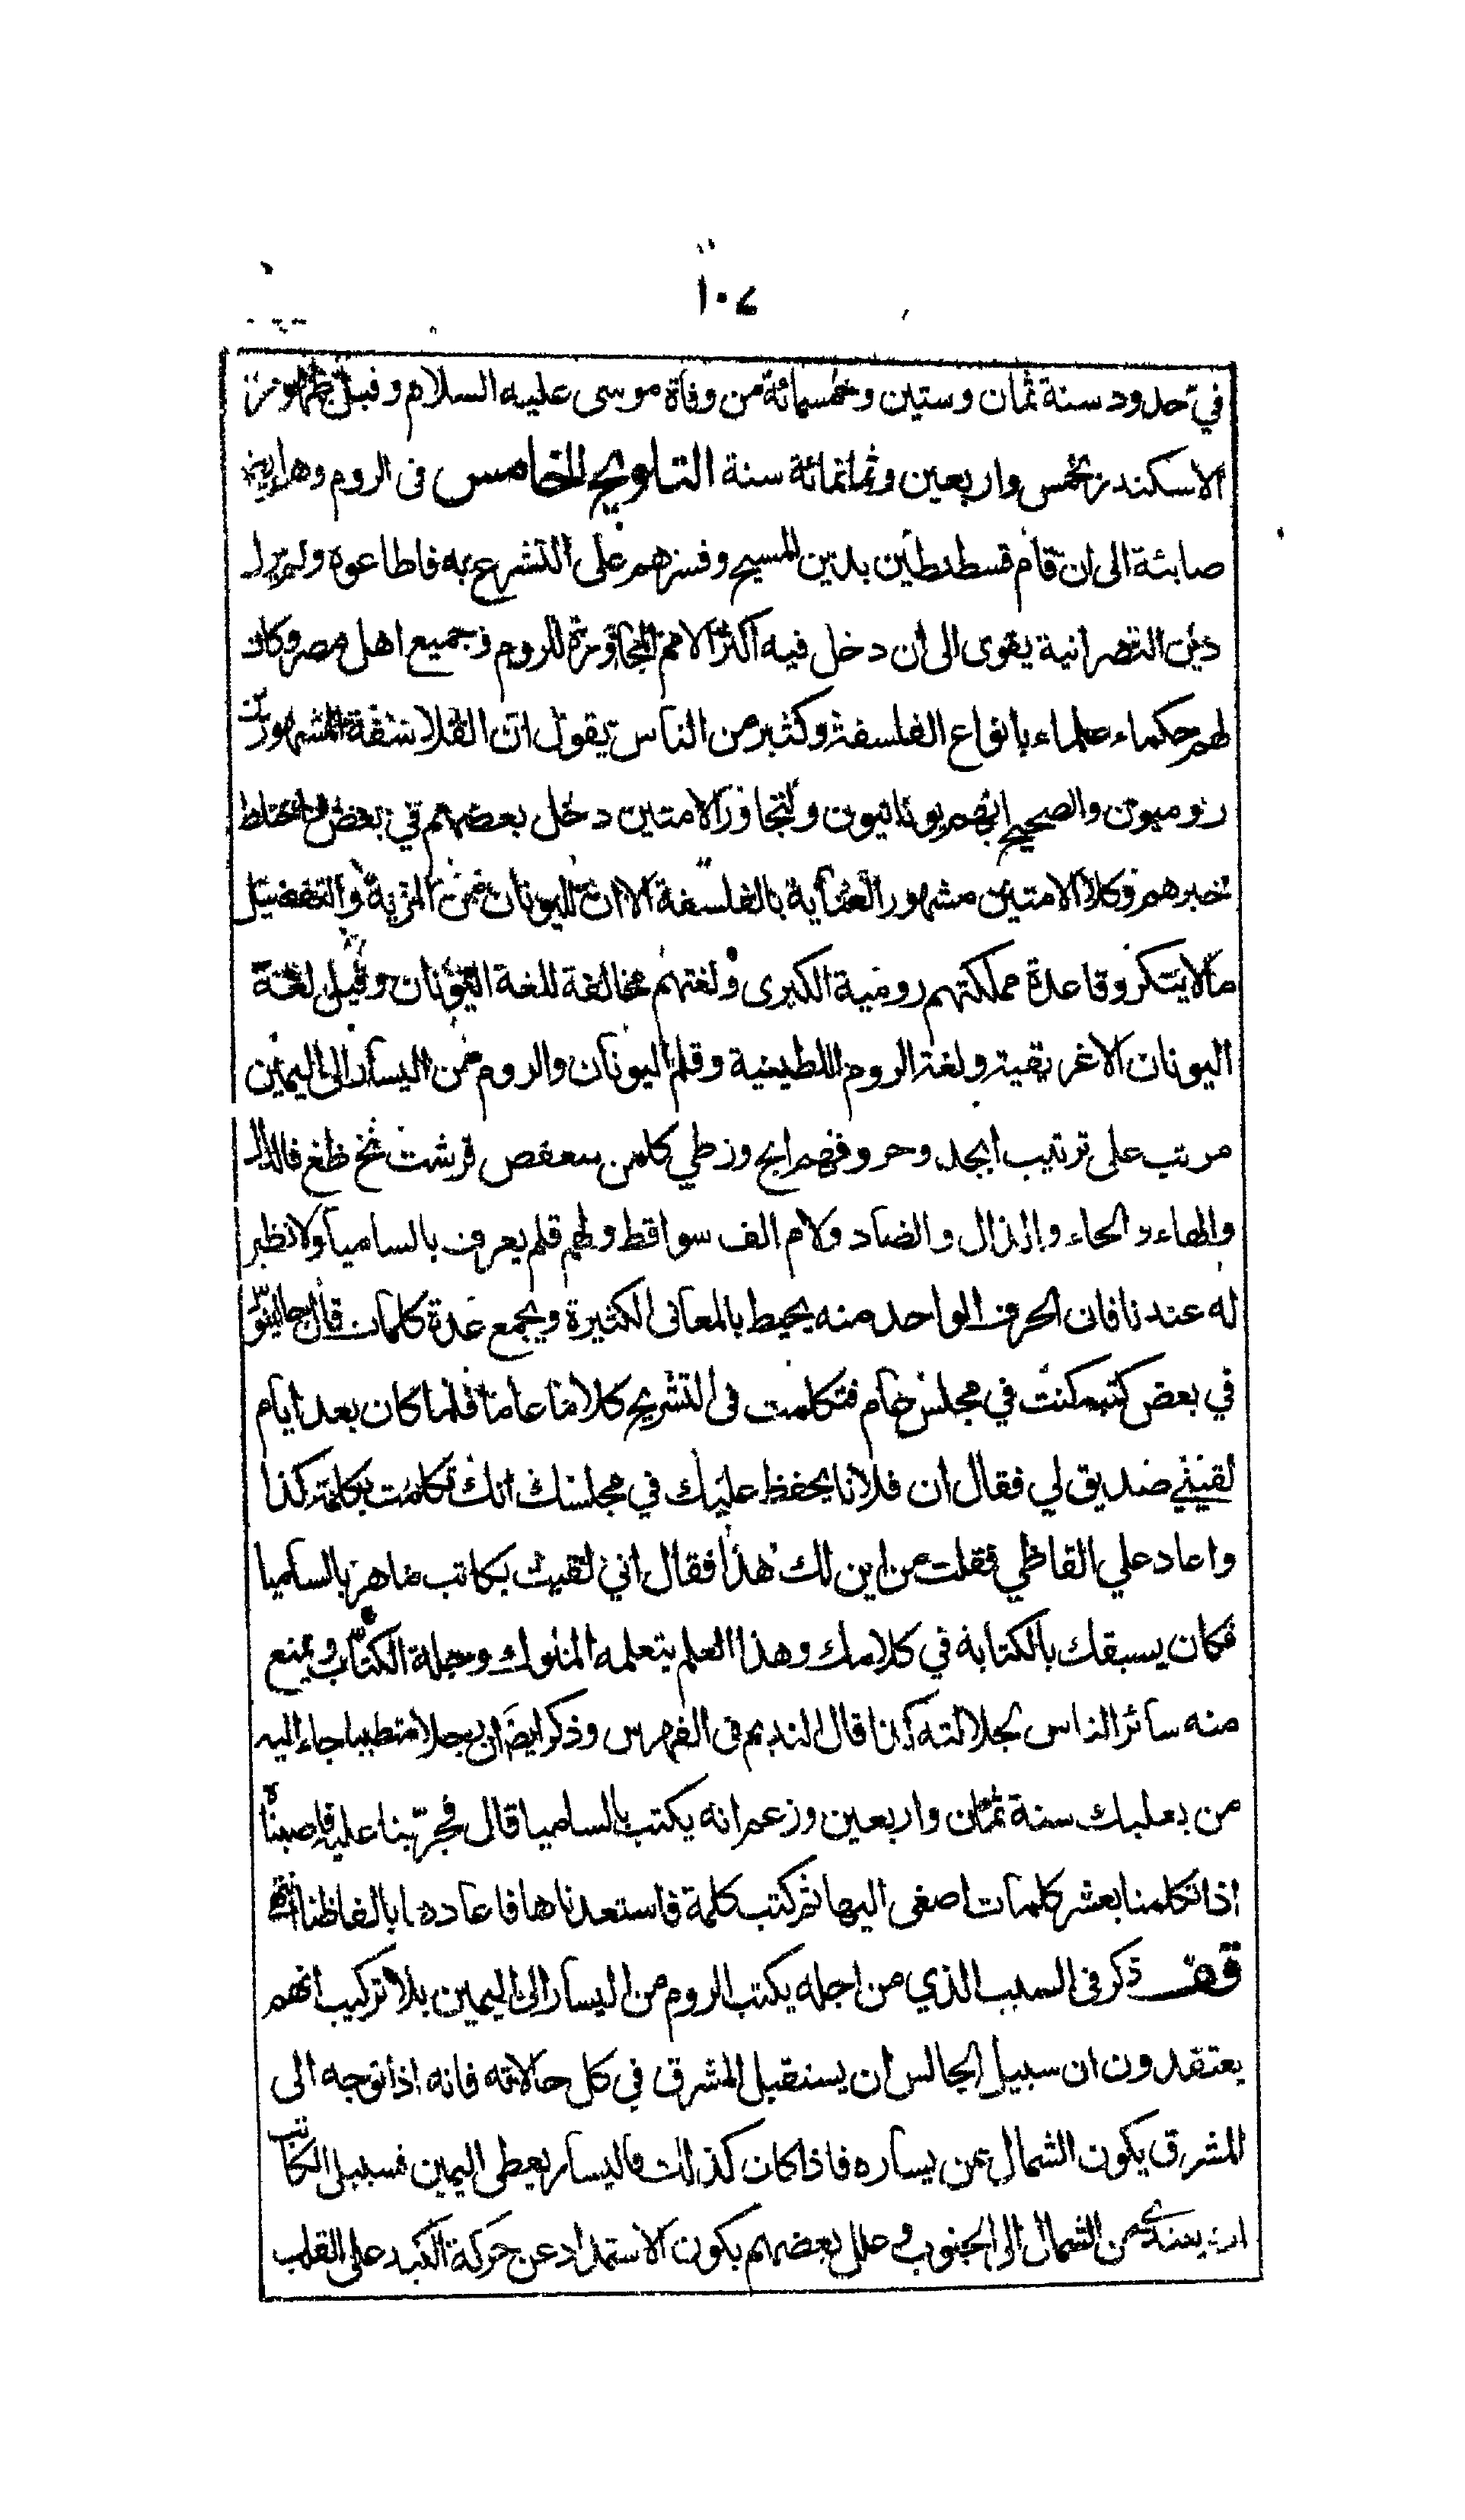 ١٠٧
في حدود سنة ثمان وستين وخمسمائة من وفاة موسى عليه السلام وقبل ظهور
الاسكندر بخمس واربعين وثمانمائة سنة التلويح الخامس فى الروم وهم ايضا
صابئة الى ان قام قسطنطين بدين المسيح وقسرهم على التشرع به فاطاعوه ولم يزل
دين النصرانية يقوى الى أن دخل فيه اكثر الامم المجاورة للروم وجميع اهل مصر وكان
لهم حكماء علماء بانواع الفلسفة وكثير من الناس يقول ان الفلاسفة المشهورين
روميون والصحيح انهم يونانيون ولتجاور الامتين دخل بعضهم في بعض واختلط
خبرهم وكلا الامتين مشهور العناية بالفلسفة الا ان لليونان من المزية والتفضيل
ما لا ينكر وقاعدة مملكتهم رومية الكبرى ولغتهم مخالفة للغة اليونان وقيل لغة
اليونان الاغريقية ولغة الروم اللطينية وقلم اليونان والروم من اليسار الى اليمين
مرتب على ترتيب ابجد وحروفهم ابج وزطي كلمن سعفص قرشت ثخ ظغ فالدال
والهاء والحاء والذال والضاد ولام الف سواقط ولهم قلم يعرف بالساميا ولا نظير
له عندنا فان الحرف الواحد منه يحيط بالمعانى الكثيرة ويجمع عدة كلمات قال جالينو
في بعض كتبه كنت في مجلس عام فتكلمت فى التشريح كلاما عاما فلما كان بعد ايام
لقيني صديق لي فقال ان فلانا يحفظ عليك في مجلسك انك تكلمت بكلمة كذا
واعاد علي الفاظي فقلت من اين لك هذا فقال اني لقيت بكاتب ماهر بالساميا
فكان يسبقك بالكتابة في كلامك وهذا العلم يتعلمه الملوك وجلة الكتاب ويمنع
منه سائر الناس لجلالته كذا قال النديم فى الفهرس وذكر ايضا ان رجلا متطببا جاء اليه
من بعلبك سنة ثمان واربعين وزعم انه يكتب بالساميا قال فجربنا عليه فاصبناه
اذا تكلمنا بعشر كلمات اصغى اليها ثم كتب كلمة فاستعدناها فاعادها بالفاظنا انتهى
قف ذكر فى السبب الذي من اجله يكتب الروم من اليسار الى اليمين بلا تركيب انهم
يعتقدون ان سبيل الجالس ان يستقبل المشرق في كل حالاته فانه اذا توجه الى
المشرق يكون الشمال عن يساره فاذا كان كذلك فاليسار يعطى اليمين فسبيل الكاتب
ان يبتدئ من الشمال الى الجنوب وعلل بعضهم بكون الاستمداد عن حركة الكبد على القلب